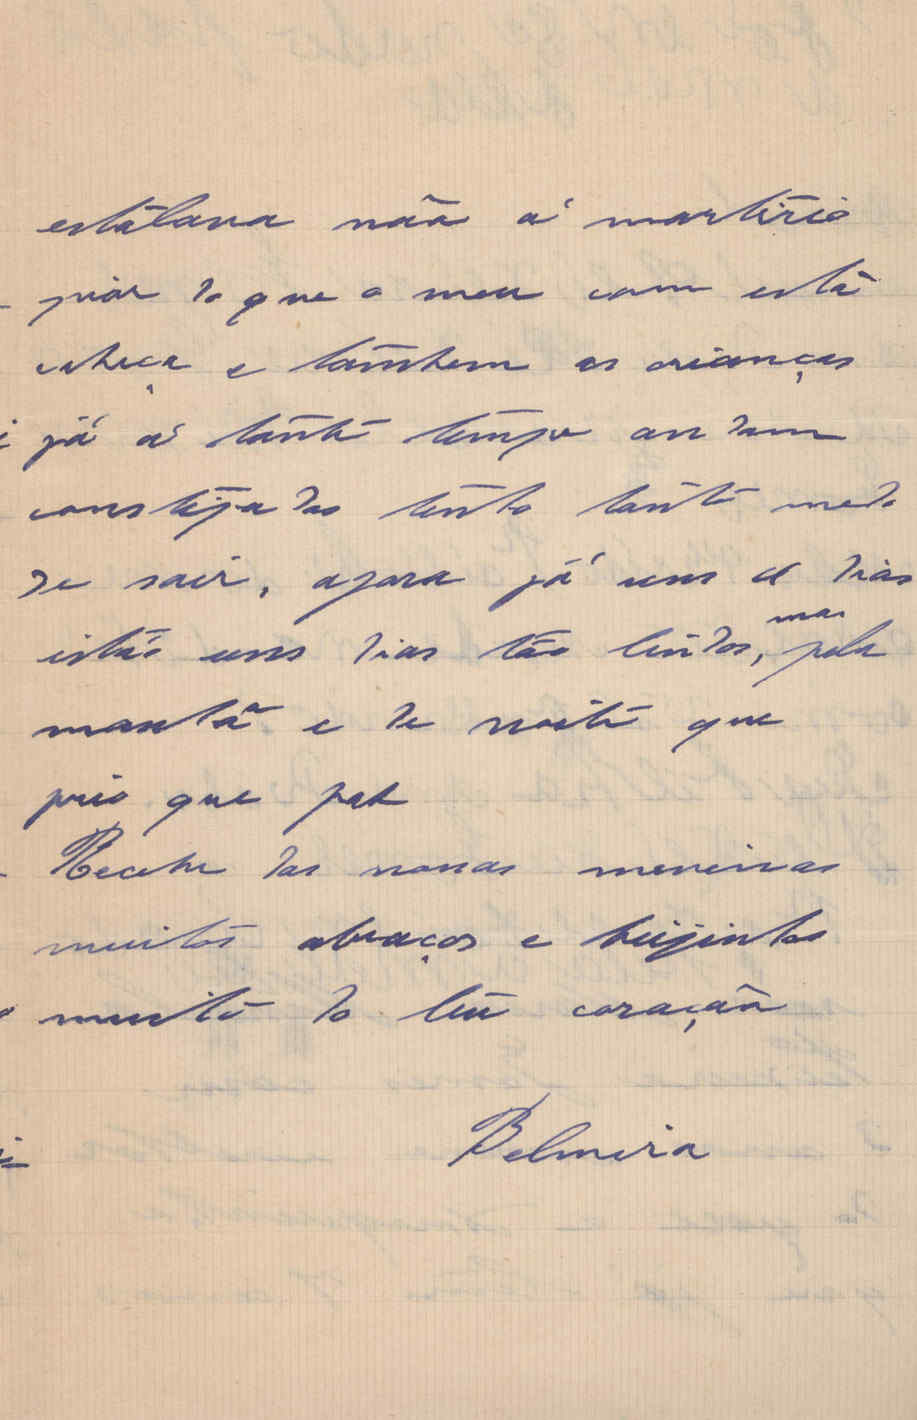 estálava não á martirio
pior do que o meu com está
cabeça e tambem as crianças
já á tanto tempo andam
constipadas tenho tanto medo
de sair, agora já uns 8 dias
estão uns dias tão lindos, mas pela
manhã e de noite que
frio que faz
Recebe das nossas meninas
muitos abraços e beijinhos
muito do teu coração
Belmira